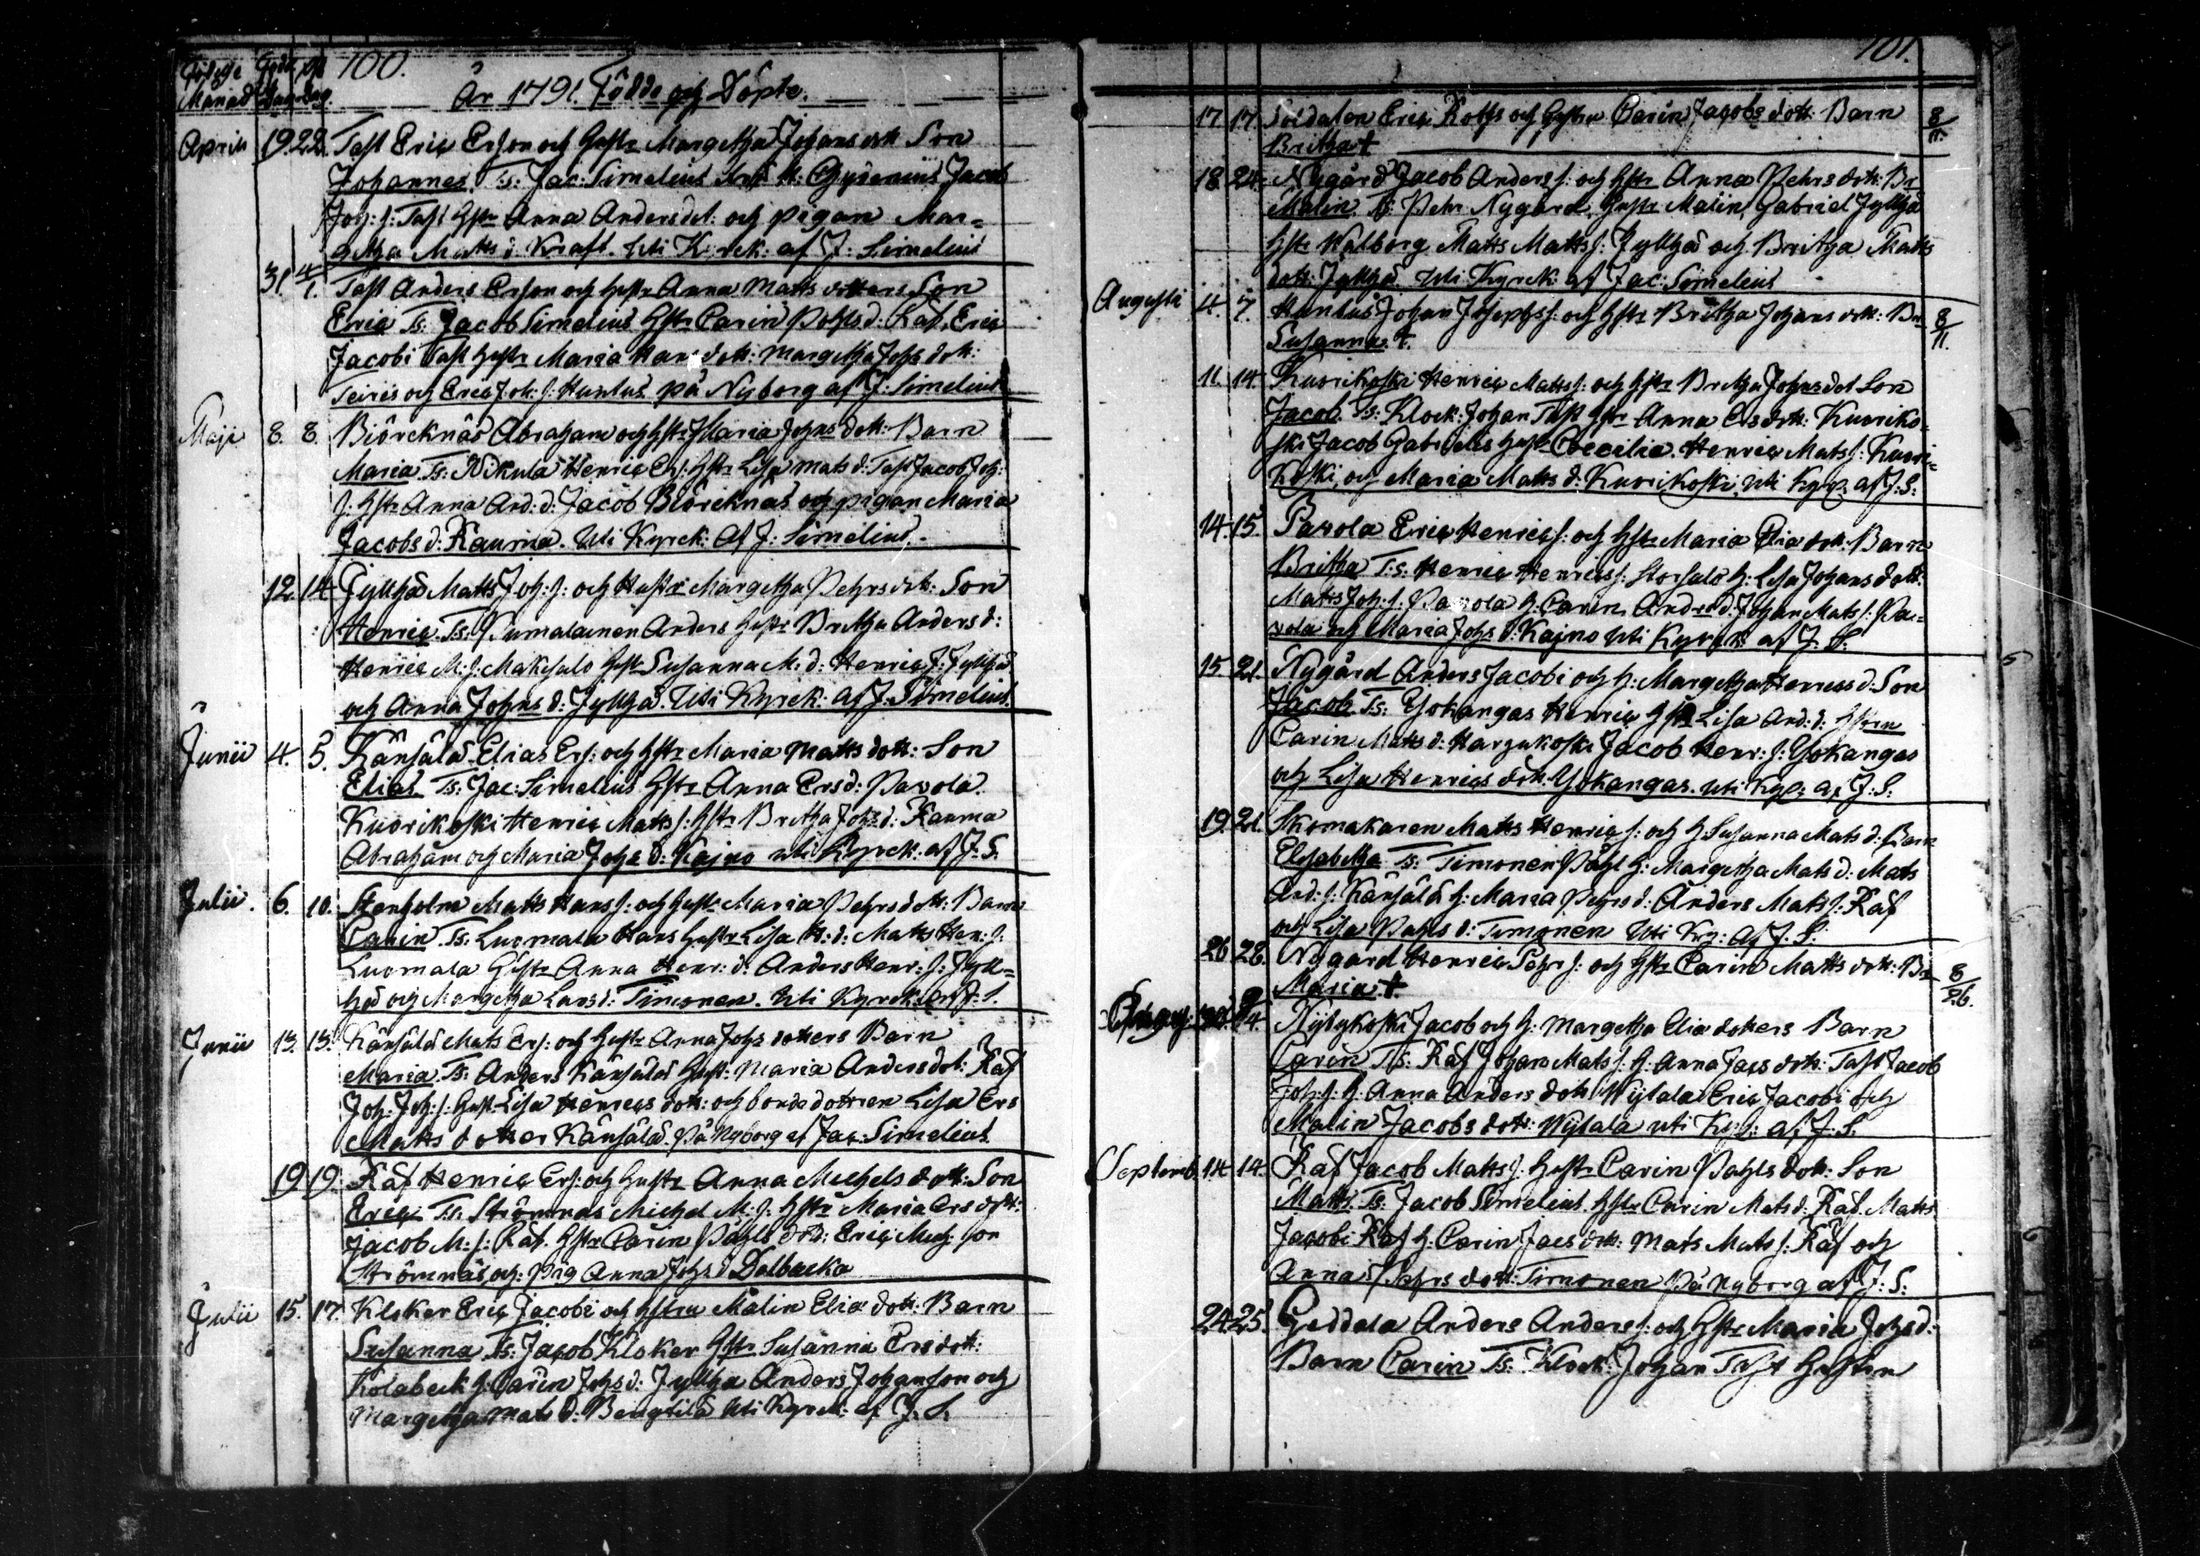 100.
Födelse Månad Föd. dag Döp. dag
År 1791. Födde och Döpte.
Aprili 19 22. Tast Eric Erson och Hustr Margetha Johans dott Son
Johannes. Ts: Jac: Simelius M: Jacob
Joh: s: Tast Hstr Anna Andersdot: och pigan Mar=
getha Matts d: Kraft. Uti Kyrck: af J: Simelius
31 4/1. Tast Anders Erson och hustr Anna Matts dotters Son
Eric Ts: Jacob Simelius Hstr Carin Pohls d: Räf, Eric
Jacobi Tast hustr Maria Hans dott: Margetha Johs dott:
och Eric Joh: s: Huntus på Nyborg af J: Simelius
Maji 8. 8 Biörcknäs Abraham och Hstr Maria Johns dott: Barn
Maria Ts: Nikula Henric Ers: Hstr Lisa Mats d: Tast Jacob Joh:
s: Hstr Anna And: d: Jacob Biörcknäs och pigan Maria
Jacobs d: Rauma. Uti Kyrck: Af J: Simelius.
12 14 Jyllhä Matts Joh: s: och Hustr Margetha Pehrs dott: Son
Henric. Ts: Pumalainen Anders Hustr Britha Anders d:
Henric M: s: Makisalo Hustr Susanna M: d: Henric J: Jyllhä
och Anna Johns d: Jyllhä. Uti Kyrck: af J: Simelius.
Junii 4. 5. Känsälä Elias Ers: och Hstr Maria Matts dott: Son
Elias Ts: Jac: Simelius Hstr Anna Ers d: Pavola.
Kuorikoski Henric Matts s: Hstr Britha Johs d: Rauma
Abraham och Maria Johs d: Kajno uti Kyrck: af J: S.
Julii. 6. 10. Stenholm Matts Hans s: och hustr Maria Pehrs dott: Barn
Carin Ts: Luomala Hans hustr Lisa H: d: Matts Hen: s:
Luomala Hustr Anna Henr: d: Anders Henr: s: Jyll=
hä och Margetha Lars d: Timonen. Uti Kyrck: af J: S.
Junii 13. 13. Känsälä Mats Ers: och Hustr Anna Johs dotters Barn
Maria. Ts: Anders Känsälä Hust: Maria Anders dot: Räf
Joh: Joh: s: Hust Lisa Henrics dott: och bonde dottren Lisa Ers
Matts dotter Känsälä. På Nyborg af Jac: Simelius
19 19. Räf Henric Ers: och hustr Anna Michels dott: Son
Eric Ts: Strömnäs Michel M: s: Hstr Maria Ers dott:
Jacob M: s: Räf. Hstr Carin Pahls dott: Eric Mich: son
Strömnäs, och: Pig Anna Johs d Dalbacka
Julii 15. 17. Kloker Eric Jacobi och Hstru Malin Elia dott: Barn
Susanna Ts: Jacob Kloker Hstr Susanna Ers dott:
Kolabeck h: Carin Johs d: Jyllhä Anders Johanson och
Margetha Mats d: Bengtilä Uti Kyrck: af J. S.
101.
17 17. Soldaten Eric Rolfs och Hustru Carin Jacobs dott: Barn 8/11.
Britha †
18 24. Nygård Jacob Anders s: och Hstr Anna Pehrs dott: Br
Malin. Ts: Pehr Nygård, Hustr Malin, Gabriel Jyllhä
Hstr Walborg Matts Matts s: Jyllhä och Britha Matts
dott: Jyllhä Uti Kyrck: af Jac: Simelius
Augusti 4. 7. Huntus Johan Josephs s: och Hstr Britha Johans dott: Br 8/11.
Susanna †.
11. 14. Kuorikoski Henric Matts s: och Hstr Britha Johns dot Son
Jacob Ts: Klock: Johan Tast Hstr Anna Ers dott: Kuoriko=
ski Jacob Gabriels Hustr Caecilia. Henric Mats s: Kuori=
koski, och Maria Matts d: Kuorikoski, Uti Kyrc: af J: S:
14. 15. Pavola Eric Henrics: och Hstr Maria Elia dott: Barn
Britha T: s: Henric Henrics s: Storsalo h: Lisa Johans dott:
Matts Joh: s: Pavola h: Carin Anders d: Johan Mats s: Pa=
vola och Maria Johs d: Kajno Uti Kyrck: af J. S.
15. 21. Nygård Anders Jacobi och h: Margetha Henrics d: Son
Jacob Ts: Yokangas Henric Hstr Lisa And: d: Hstrn
Carin Matts d: Harjukoski Jacob Henr: s: Yokangas
och Lisa Henrics dott: Yokangas. Uti Kyrc: af J: S:
19. 21. Skomakaren Matts Henric s: och h. Susanna Mats d: Barn
Elisabetha Ts: Timonen Påhl h: Margetha Mats d: Mats
And: s: Känsälä h: Maria Pehrs d: Anders Mats s: Räf
och Lisa Pahls d: Timonen Uti Kyr: af J: S:
26 28. Nygård Henric Pehr s: och Hstr Carin Matts dott: Br 8/26.
Maria †
Nylykoski Jacob och h: Margetha Elia dotters Barn
Carin Ts: Räf Johan Mats s: h: Anna Jacs dott: Tast Jacob
Joh: s: h: Anna Anders dott: Eric Jacobi och
Malin Jacobs dott: uti Kyrc: af J: S.
Septemb. 14. 14. Räf Jacob Matts s: Hustr Carin Pahls dott: Son
Matts. Ts: Jacob Simelius Hstr Carin Mats d: Räf. Matts
Jacobi Räf h: Carin Jacs dott: Mats Mats s: Räf och
Anna Pehrs dott: Timonen På Nyborg af J: S:
24. 25. Geddala Anders Anders s: och Hstr Maria Johs d:
Barn Carin Ts: Klock: Johan Tast Hustrn